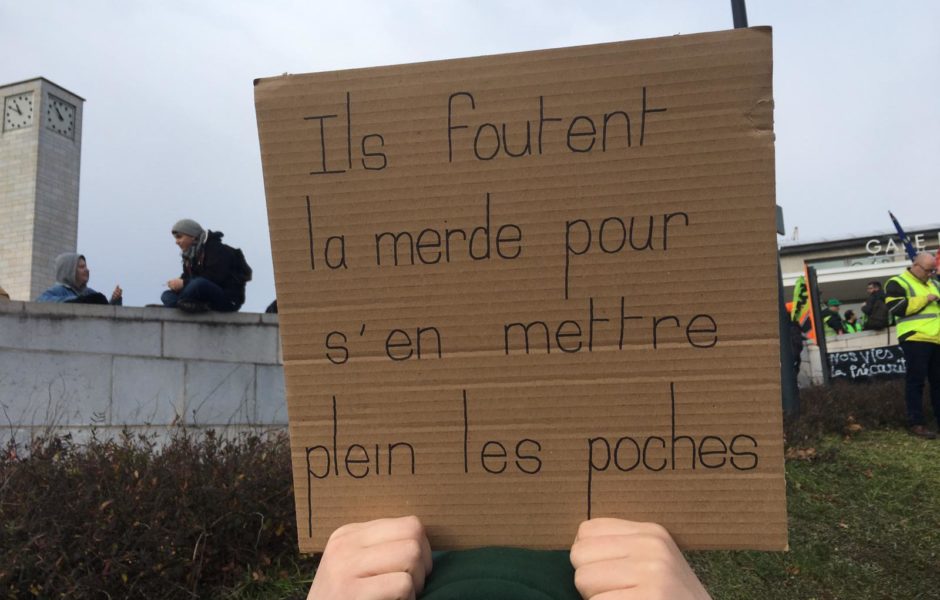 Ils foutent
la merde pour
s'en mettre
plein les poches
GARE
Nos vies
la précarité